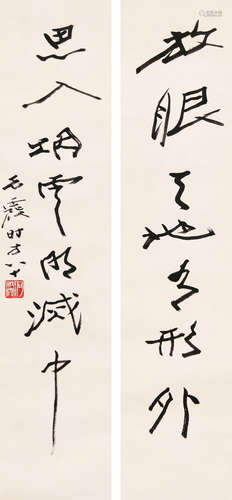 放眼天地有形外
思入烟雲明滅中
石霞时方八十